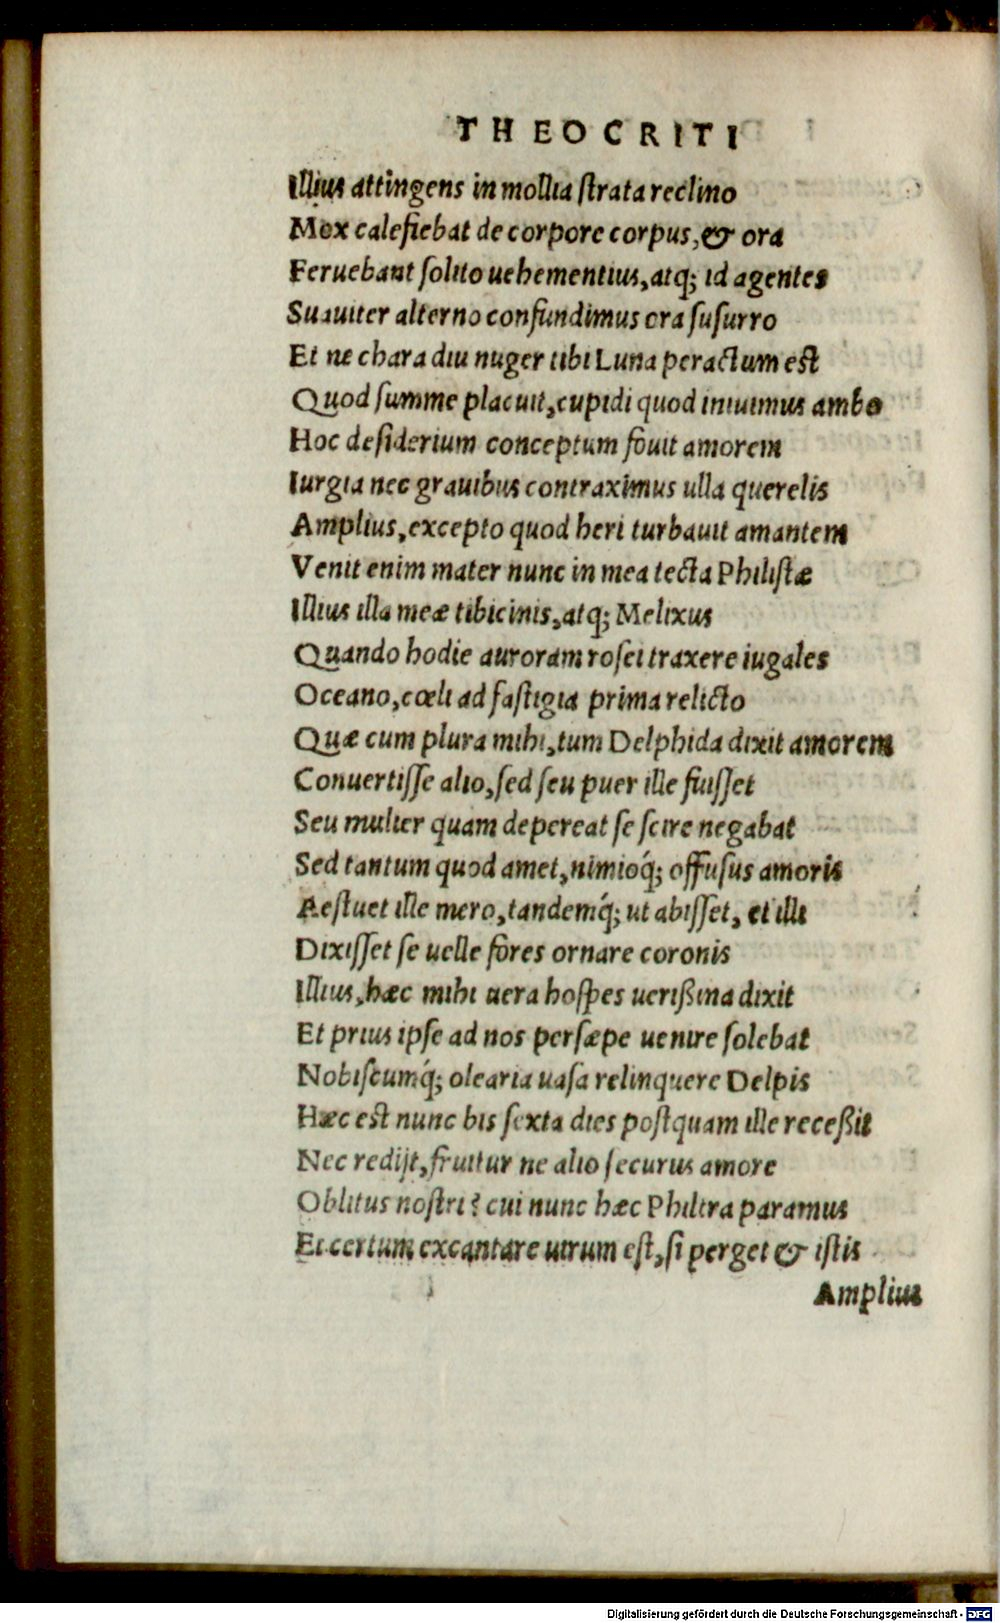 THEOCRITI
Illius attingens in mollia strata reclino
Mox calefiebat de corpore corpus, & ora
Feruebant solito uehementius, atq; id agentes
Suauiter alterno confundimus ora susurro
Et ne chara diu nuger tibi Luna peractum est
Quod summe placuit, cupidi quod iniuimus ambo
Hoc desiderium conceptum fouit amorem
Iurgia nec grauibus contraximus ulla querelis
Amplius, excepto quod heri turbauit amantem
Venit enim mater nunc in mea tecta Philistæ
Illius illa meæ tibicinis, atq; Melixus
Quando hodie auroram rosei traxere iugales
Oceano, cœli ad fastigia prima relicto
Quæ cum plura mihi, tum Delphida dixit amorem
Conuertisse alio, sed seu puer ille fuisset
Seu mulier quam depereat se scire negabat
Sed tantum quod amet, nimioq́; offusus amoris
Aestuet ille mero, tandemq́; ut abisset, et illi
Dixisset se uelle fores ornare coronis
Illius, hæc mihi uera hospes uerißima dixit
Et prius ipse ad nos persæpe uenire solebat
Nobiscumq́; olearia uasa relinquere Delpis
Hæc est nunc bis sexta dies postquam ille receßit
Nec redijt, fruitur ne alio securus amore
Oblitus nostri? cui nunc hæc Philtra paramus
Et certum excantare uirum est, si perget & istis
Amplius
Digitalisierung gefördert durch die Deutsche Forschungsgemeinschaft - DFG